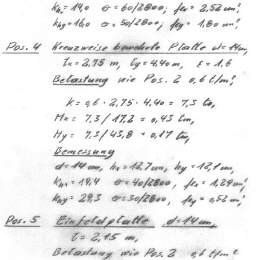 kₕₓ = 14,0 σ = 60/2800, feₓ = 2.52 cm²
kₕy = 16,0 σ = 50/2800, fey = 1,80 cm²
Pos. 4 Kreuzweise bewehrte Platte d = 14 cm,
lₓ = 2,75 m, ly = 4.40 m, ε = 1.6
Belastung wie Pos. 2 0,6 t/m²
K = 0,6 · 2,75 · 4.40 = 7,3 to,
Mₓ = 7,3 / 17,2 = 0,43 tm,
My = 7,3 / 43,8 = 0,17 tm,
Bemessung
d = 14 cm, hₓ = 12,7 cm, hy = 12,1 cm,
kₕₓ = 19,4 σ = 40/2800, feₓ = 1,29 cm²
kₕy = 29,3 σ = 30/2800, fey = 0,52 cm²
Pos. 5 Einfeldplatte d = 14 cm,
l = 2,15 m,
Belastung wie Pos. 2 0,6 t/m²